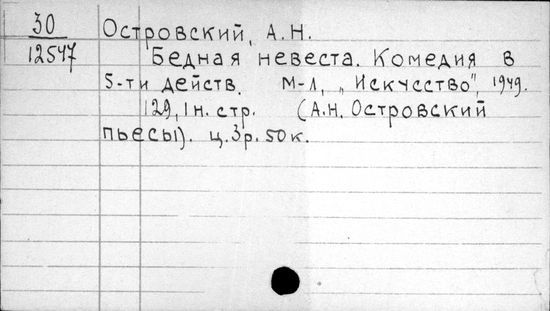 30 Островский, А.Н.
12547 Бедная невеста. Комедия в
5-ти действ. М-Л, „Искусство", 1949.
129, 1 н. стр. (А.Н. Островский
пьесы). ц. 3 р. 50 к.